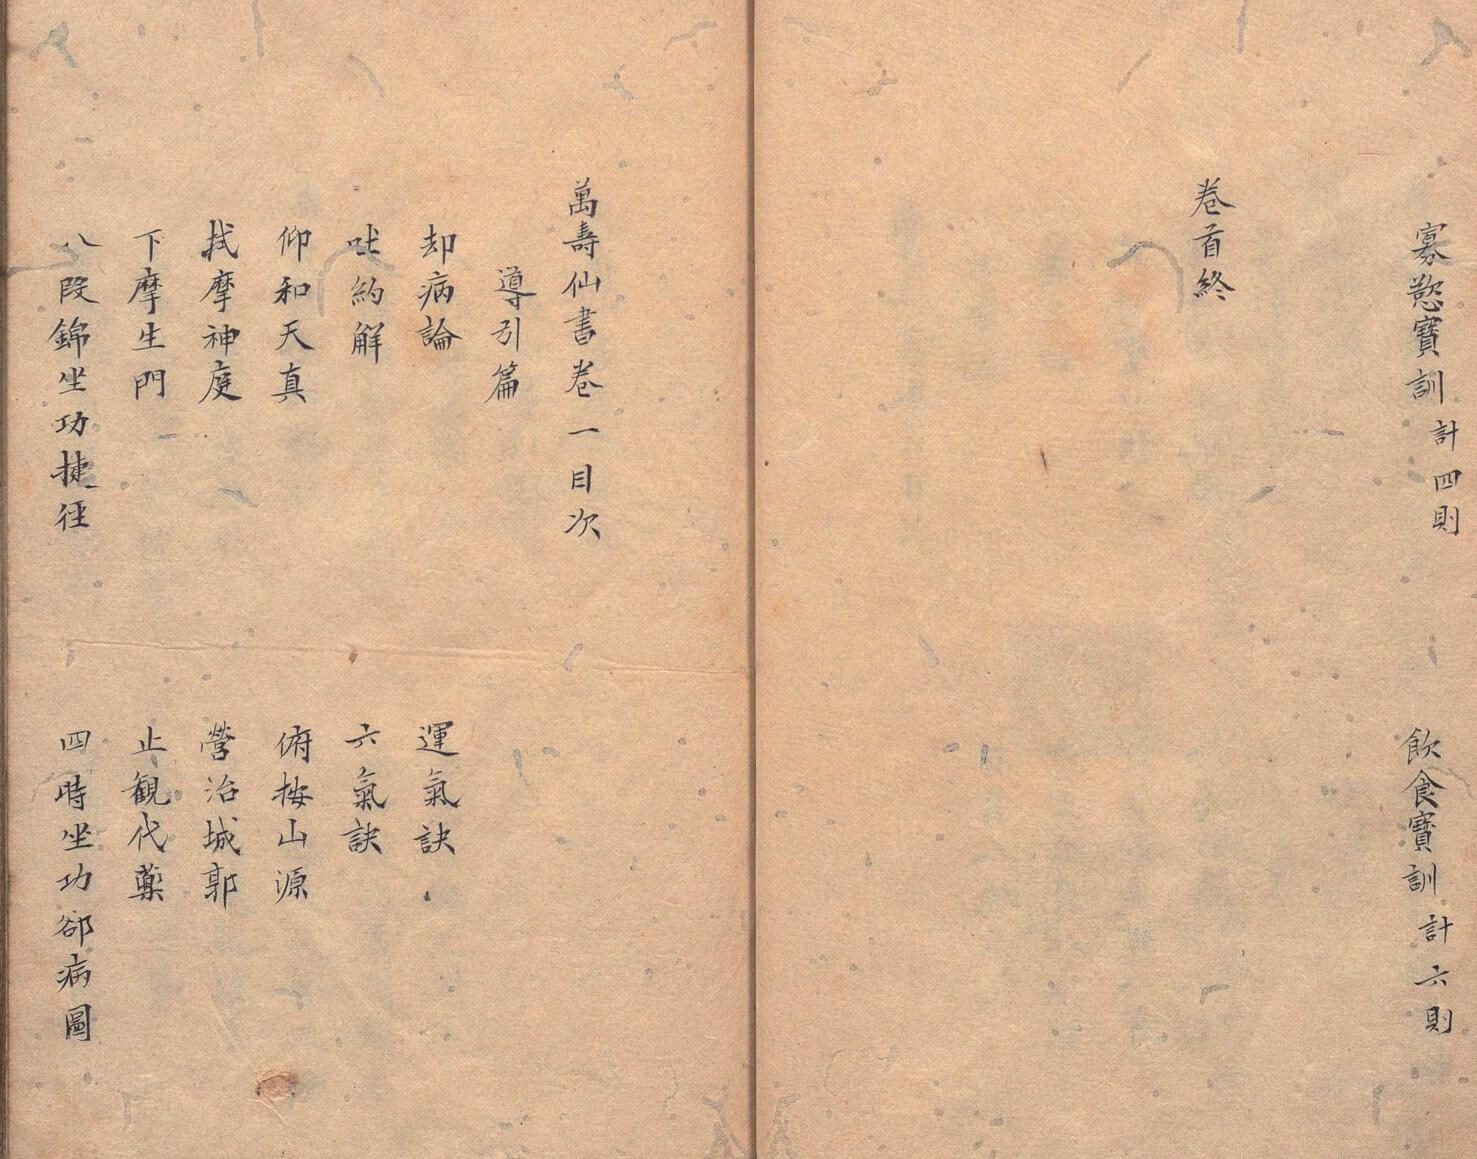 寡慾寶訓 計四則
飲食寶訓 計六則
卷首終
萬壽仙書卷一目次
導引篇
却病論
運氣訣
吐納解
六氣訣
仰和天真
俯按山源
拭摩神庭
營治城郭
下摩生門
止観代藥
八段錦坐功捷徑
四時坐功郤病圖